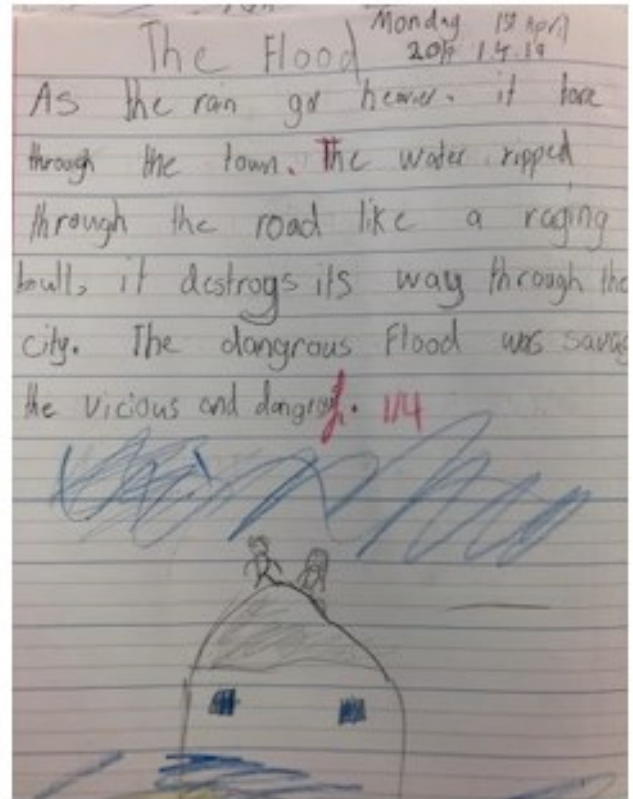 The Flood
Monday 1st April
2019 1.4.19
As the rain got heavier. it tore
through the town. The water ripped
through the road like a raging
bull, it destroys its way through the
city. The dangrous flood was savag
the vicious and
1/4